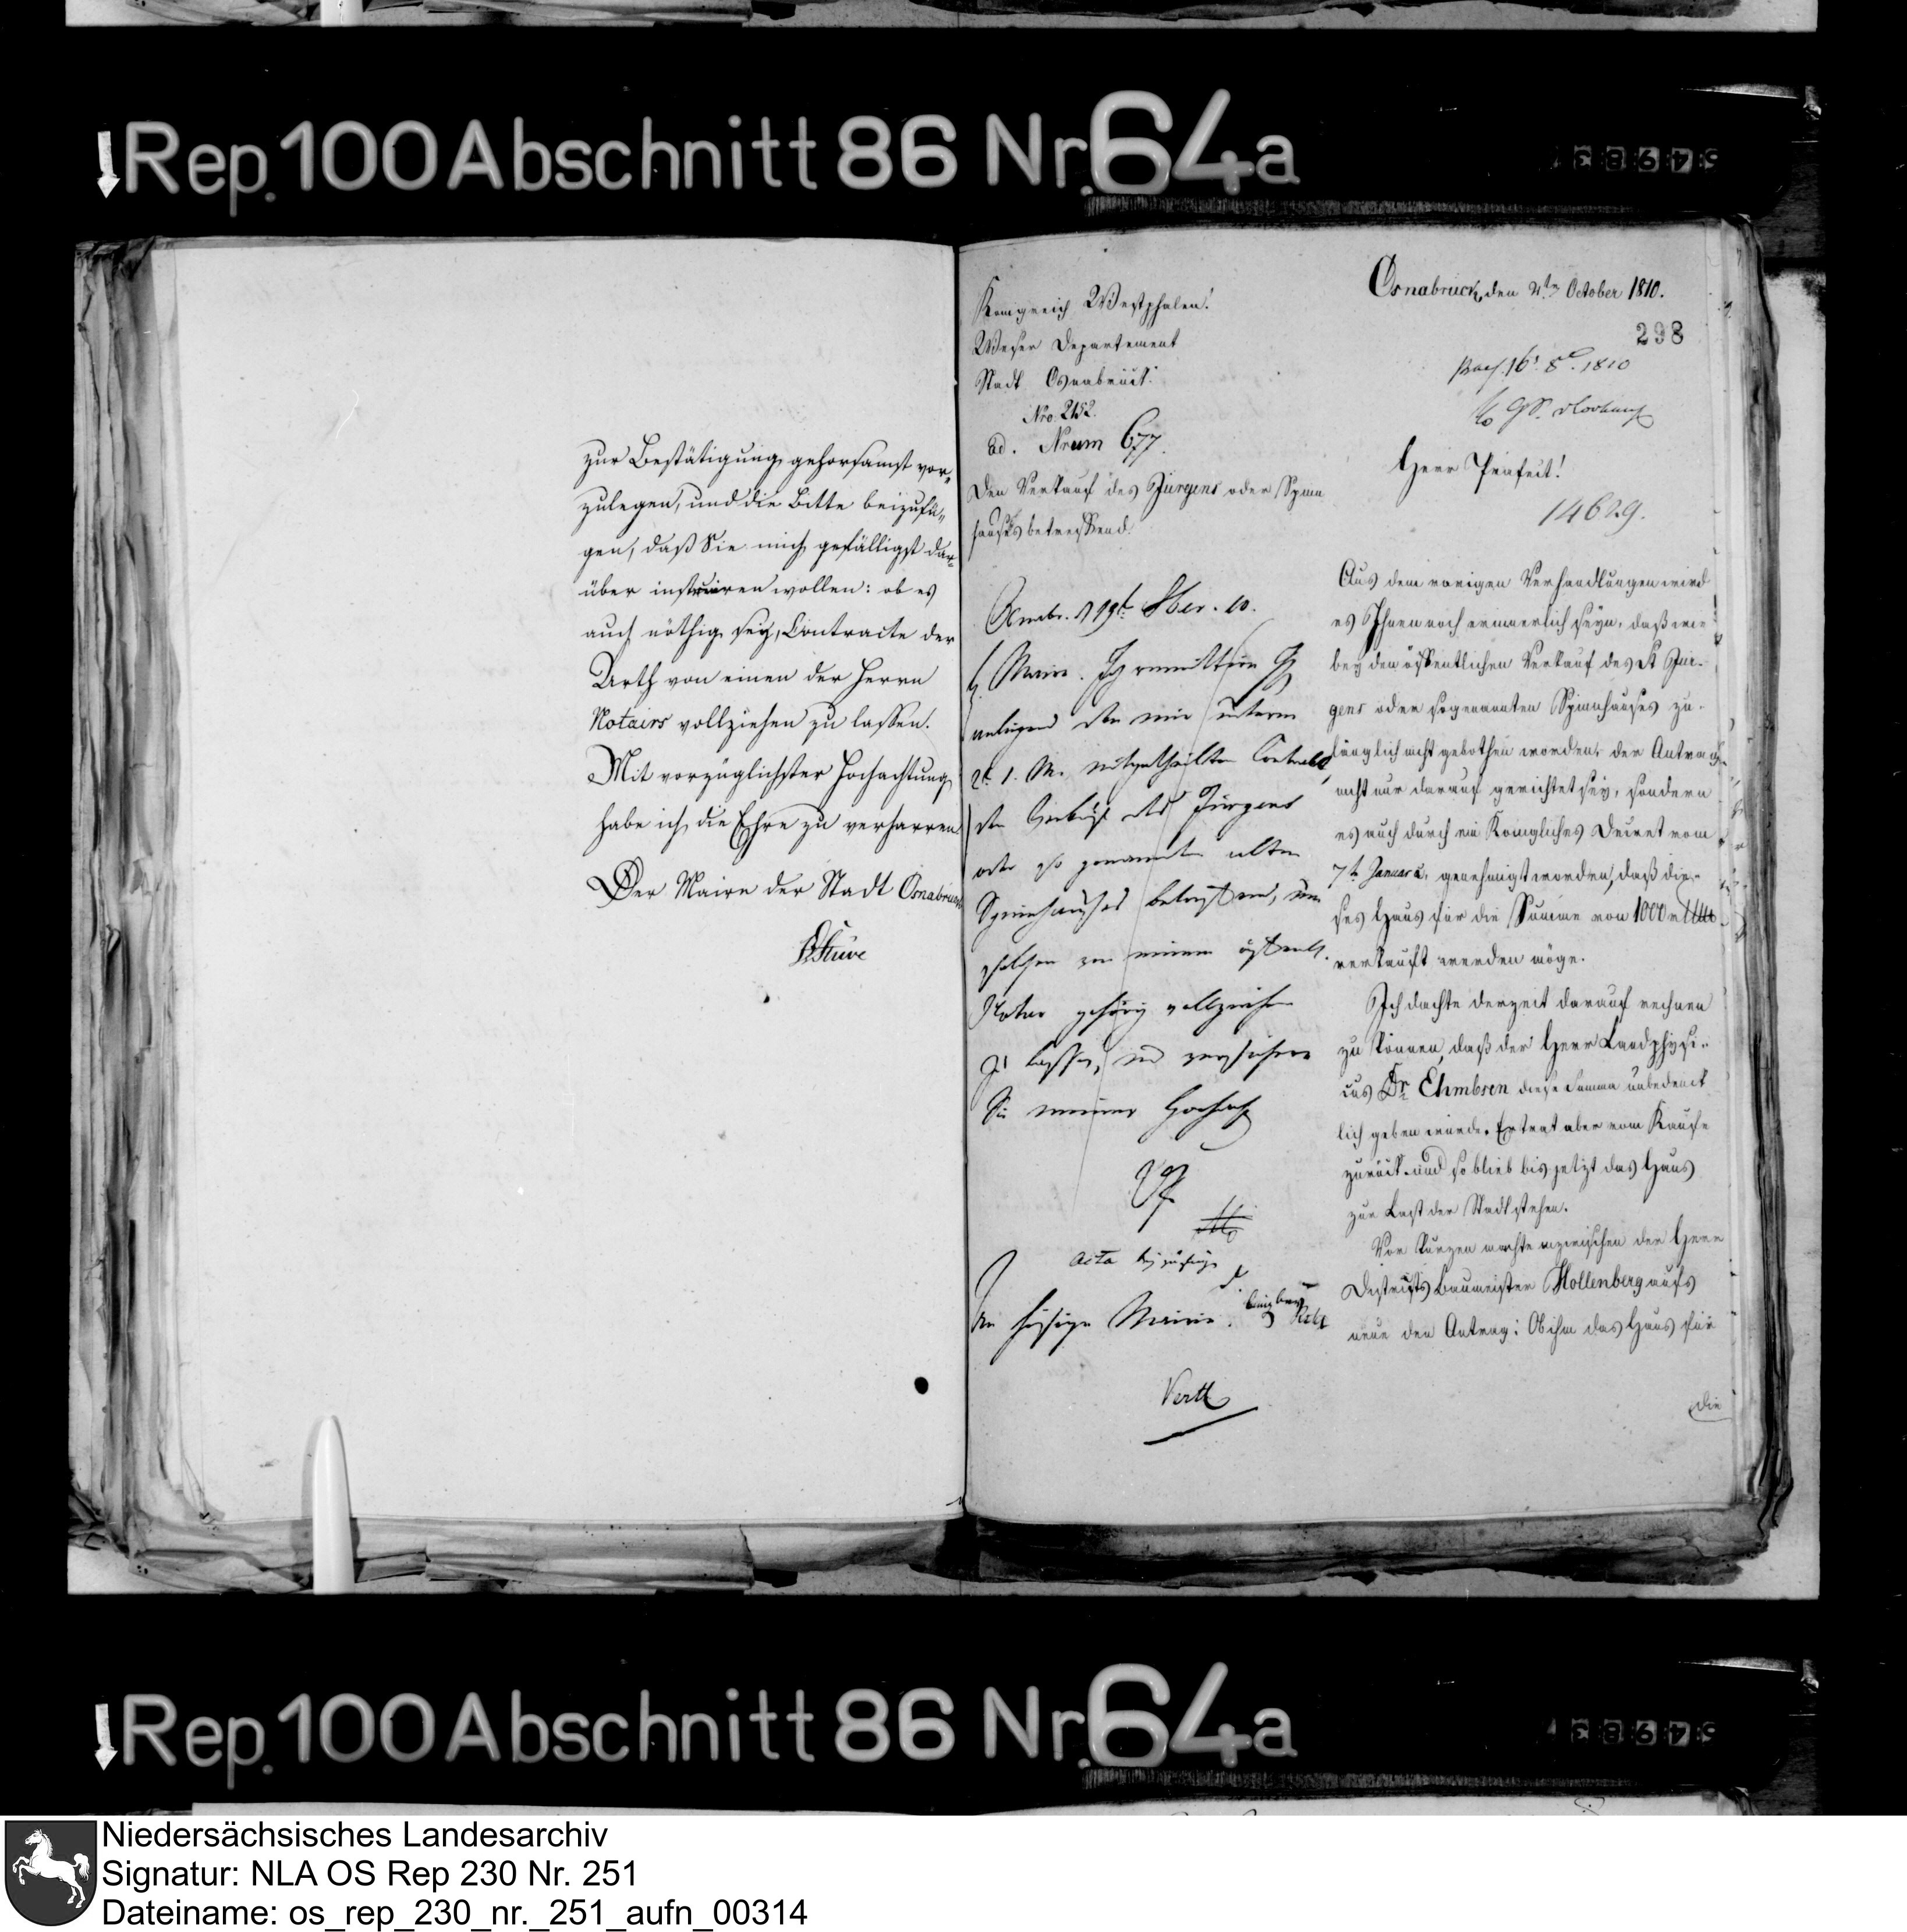 Rep. 100 Abschnitt 86 Nr. 64a
54983
zur Bestätigung gehorsamst vor-
zulegen, und die Bitte beizufü-
gen, daß Sie mich gefälligst dar-
über instruiren wollen: ob es
auch nöthig sey, Contracte der
Arth von einen der Herrn
Notairs vollziehen zu lassen.
Mit vorzüglichster Hochachtung
habe ich die Ehre zu verharren
Der Maire der Stadt Osnabrück
Stüve
Königreich Westphalen.
Weser Departement
Stadt Osnabrück.
Nro. 2152.
ad. Nrum 677.
Den Verkauf des Jürgens oder Spinn
hauses betreffend.
8ber. 10.
H Maire. Ich
anliegend den mir unterm
2t. d. M. mitgetheilten Contract,
den Verkauf des Jürgens
oder so genannten alten
Spinnhauses betreffend, um
solchen von einem öffentl.
Notar gehörig vollziehen
zu lassen, und versichere
Sie meiner Hochacht
Acta beizufügen
An hiesigen Maire.
Osnabrück, den 2ten October 1810.
298
praes. 16t 8br. 1810
Herr Präfect!
14629.
Aus dem vorigen Verhandlungen wird
es Ihnen noch erinnerlich seyn, daß wie
bey den öffentlichen Verkauf des St Jür-
gens oder sogenannten Spinnhauses zu-
länglich nicht gebothen worden, der Antrag
nicht nur darauf gerichtet sey, sondern
es auch durch ein Königliches Decret vom
7ten Januar c. genehmigt worden, daß die-
ses Haus für die Summe von 1000
verkauft werden möge.
Ich dachte derzeit darauf rechnen
zu können, daß der Herr Landphysi-
cus Dr. Ehmbsen diese Summa unbedenck
lich geben würde. Er trat aber vom Kaufe
zurück und so blieb bis jetzt das Haus
zur Last der Stadt stehen.
Vor kurzen machte inzwischen der Herr
Districts Baumeister Hollenberg aufs
neue den Antrag: Ob ihm das Haus für
die
Rep. 100 Abschnitt 86 Nr. 64a
54983
Niedersächsisches Landesarchiv
Signatur: NLA OS Rep 230 Nr. 251
Dateiname: os_rep_230_nr._251_aufn_00314